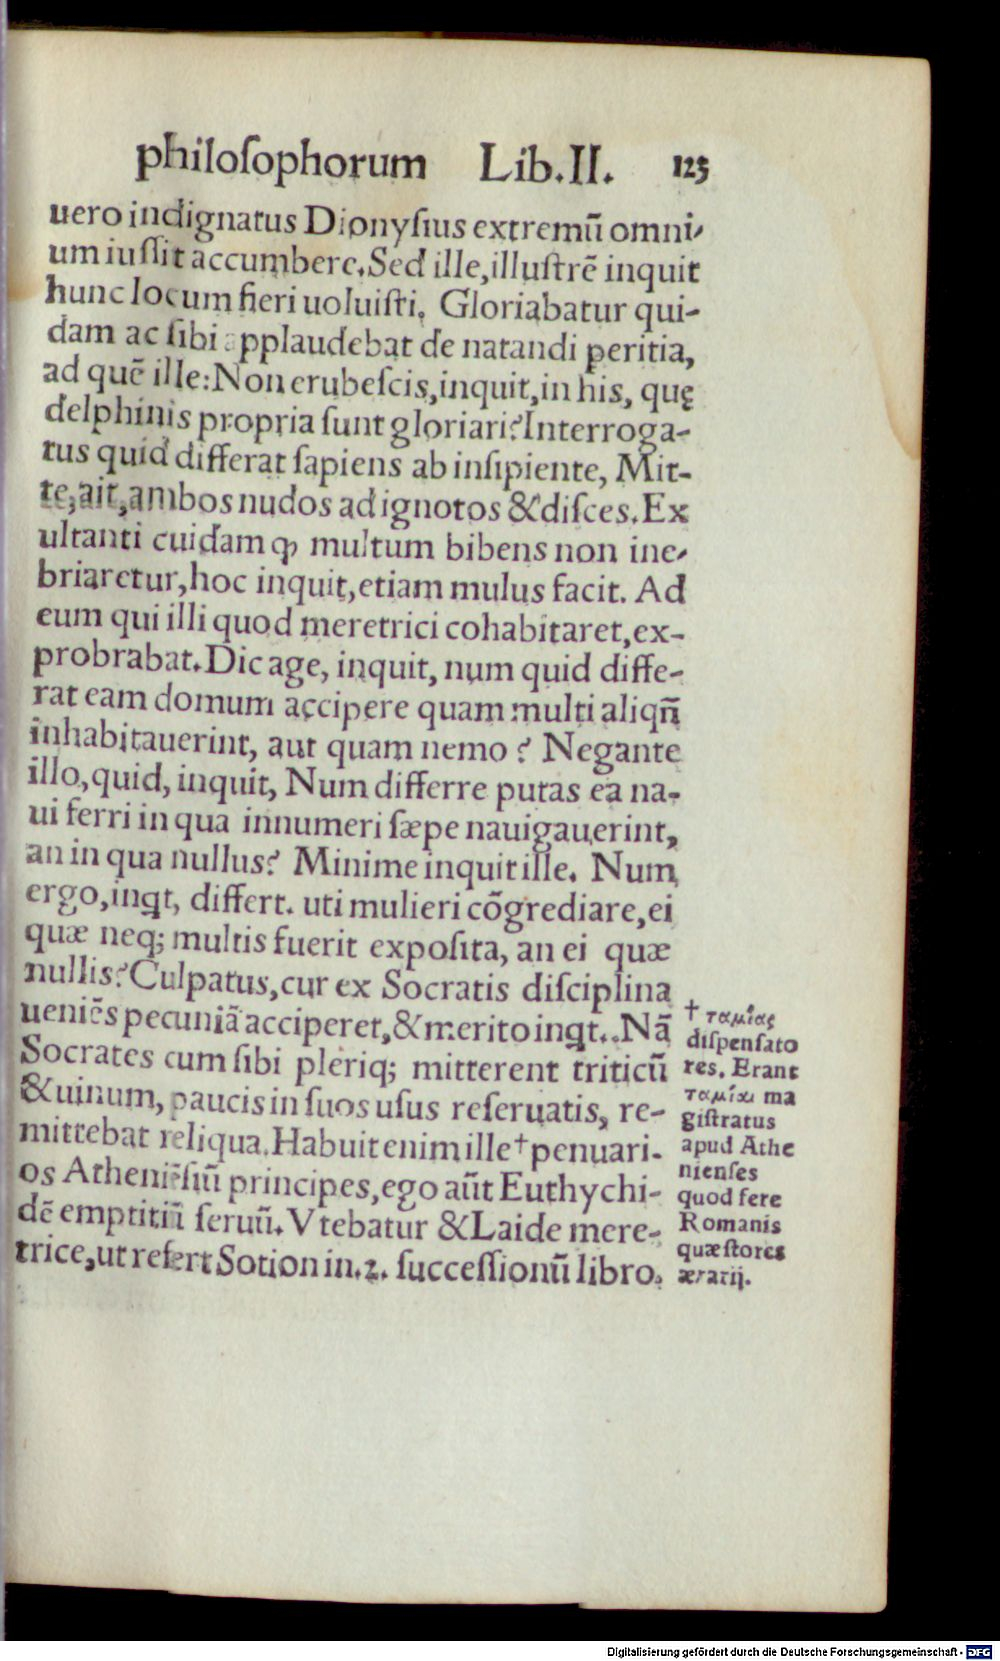 philoſophorum Lib.II. 125
uero indignatus Dionyſius extremū omni-
um iuſſit accumbere. Sed ille, illuſtrē inquit
hunc locum fieri uoluiſti. Gloriabatur qui-
dam ac ſibi applaudebat de natandi peritia,
ad quē ille: Non erubeſcis, inquit, in his, quę
delphinis propria ſunt gloriari? Interroga-
tus quid differat ſapiens ab inſipiente, Mit-
te, ait, ambos nudos ad ignotos & diſces. Ex
ultanti cuidam ꝙ multum bibens non ine-
briaretur, hoc inquit, etiam mulus facit. Ad
eum qui illi quod meretrici cohabitaret, ex-
probrabat. Dic age, inquit, num quid diffe-
rat eam domum accipere quam multi aliqñ
inhabitauerint, aut quam nemo? Negante
illo, quid, inquit, Num differre putas ea na-
ui ferri in qua innumeri ſæpe nauigauerint,
an in qua nullus? Minime inquit ille. Num
ergo, inqt, differt. uti mulieri cōgrediare, ei
quæ neq; multis fuerit expoſita, an ei quæ
nullis? Culpatus, cur ex Socratis diſciplina
ueniēs pecuniā acciperet, & merito inqt. Nā
Socrates cum ſibi pleriq; mitterent triticū
& uinum, paucis in ſuos uſus reſeruatis, re-
mittebat reliqua. Habuit enim ille † penuari-
os Atheniēſiū principes, ego aūt Euthychi-
dē emptitiū ſeruū. Vtebatur & Laide mere-
trice, ut refert Sotion in .2. ſucceſſionū libro.
† ταμίας
diſpenſato
res. Erant
ταμίαι ma
giſtratus
apud Athe
nienſes
quod fere
Romanis
quæſtores
ærarij.
Digitalisierung gefördert durch die Deutsche Forschungsgemeinschaft - DFG